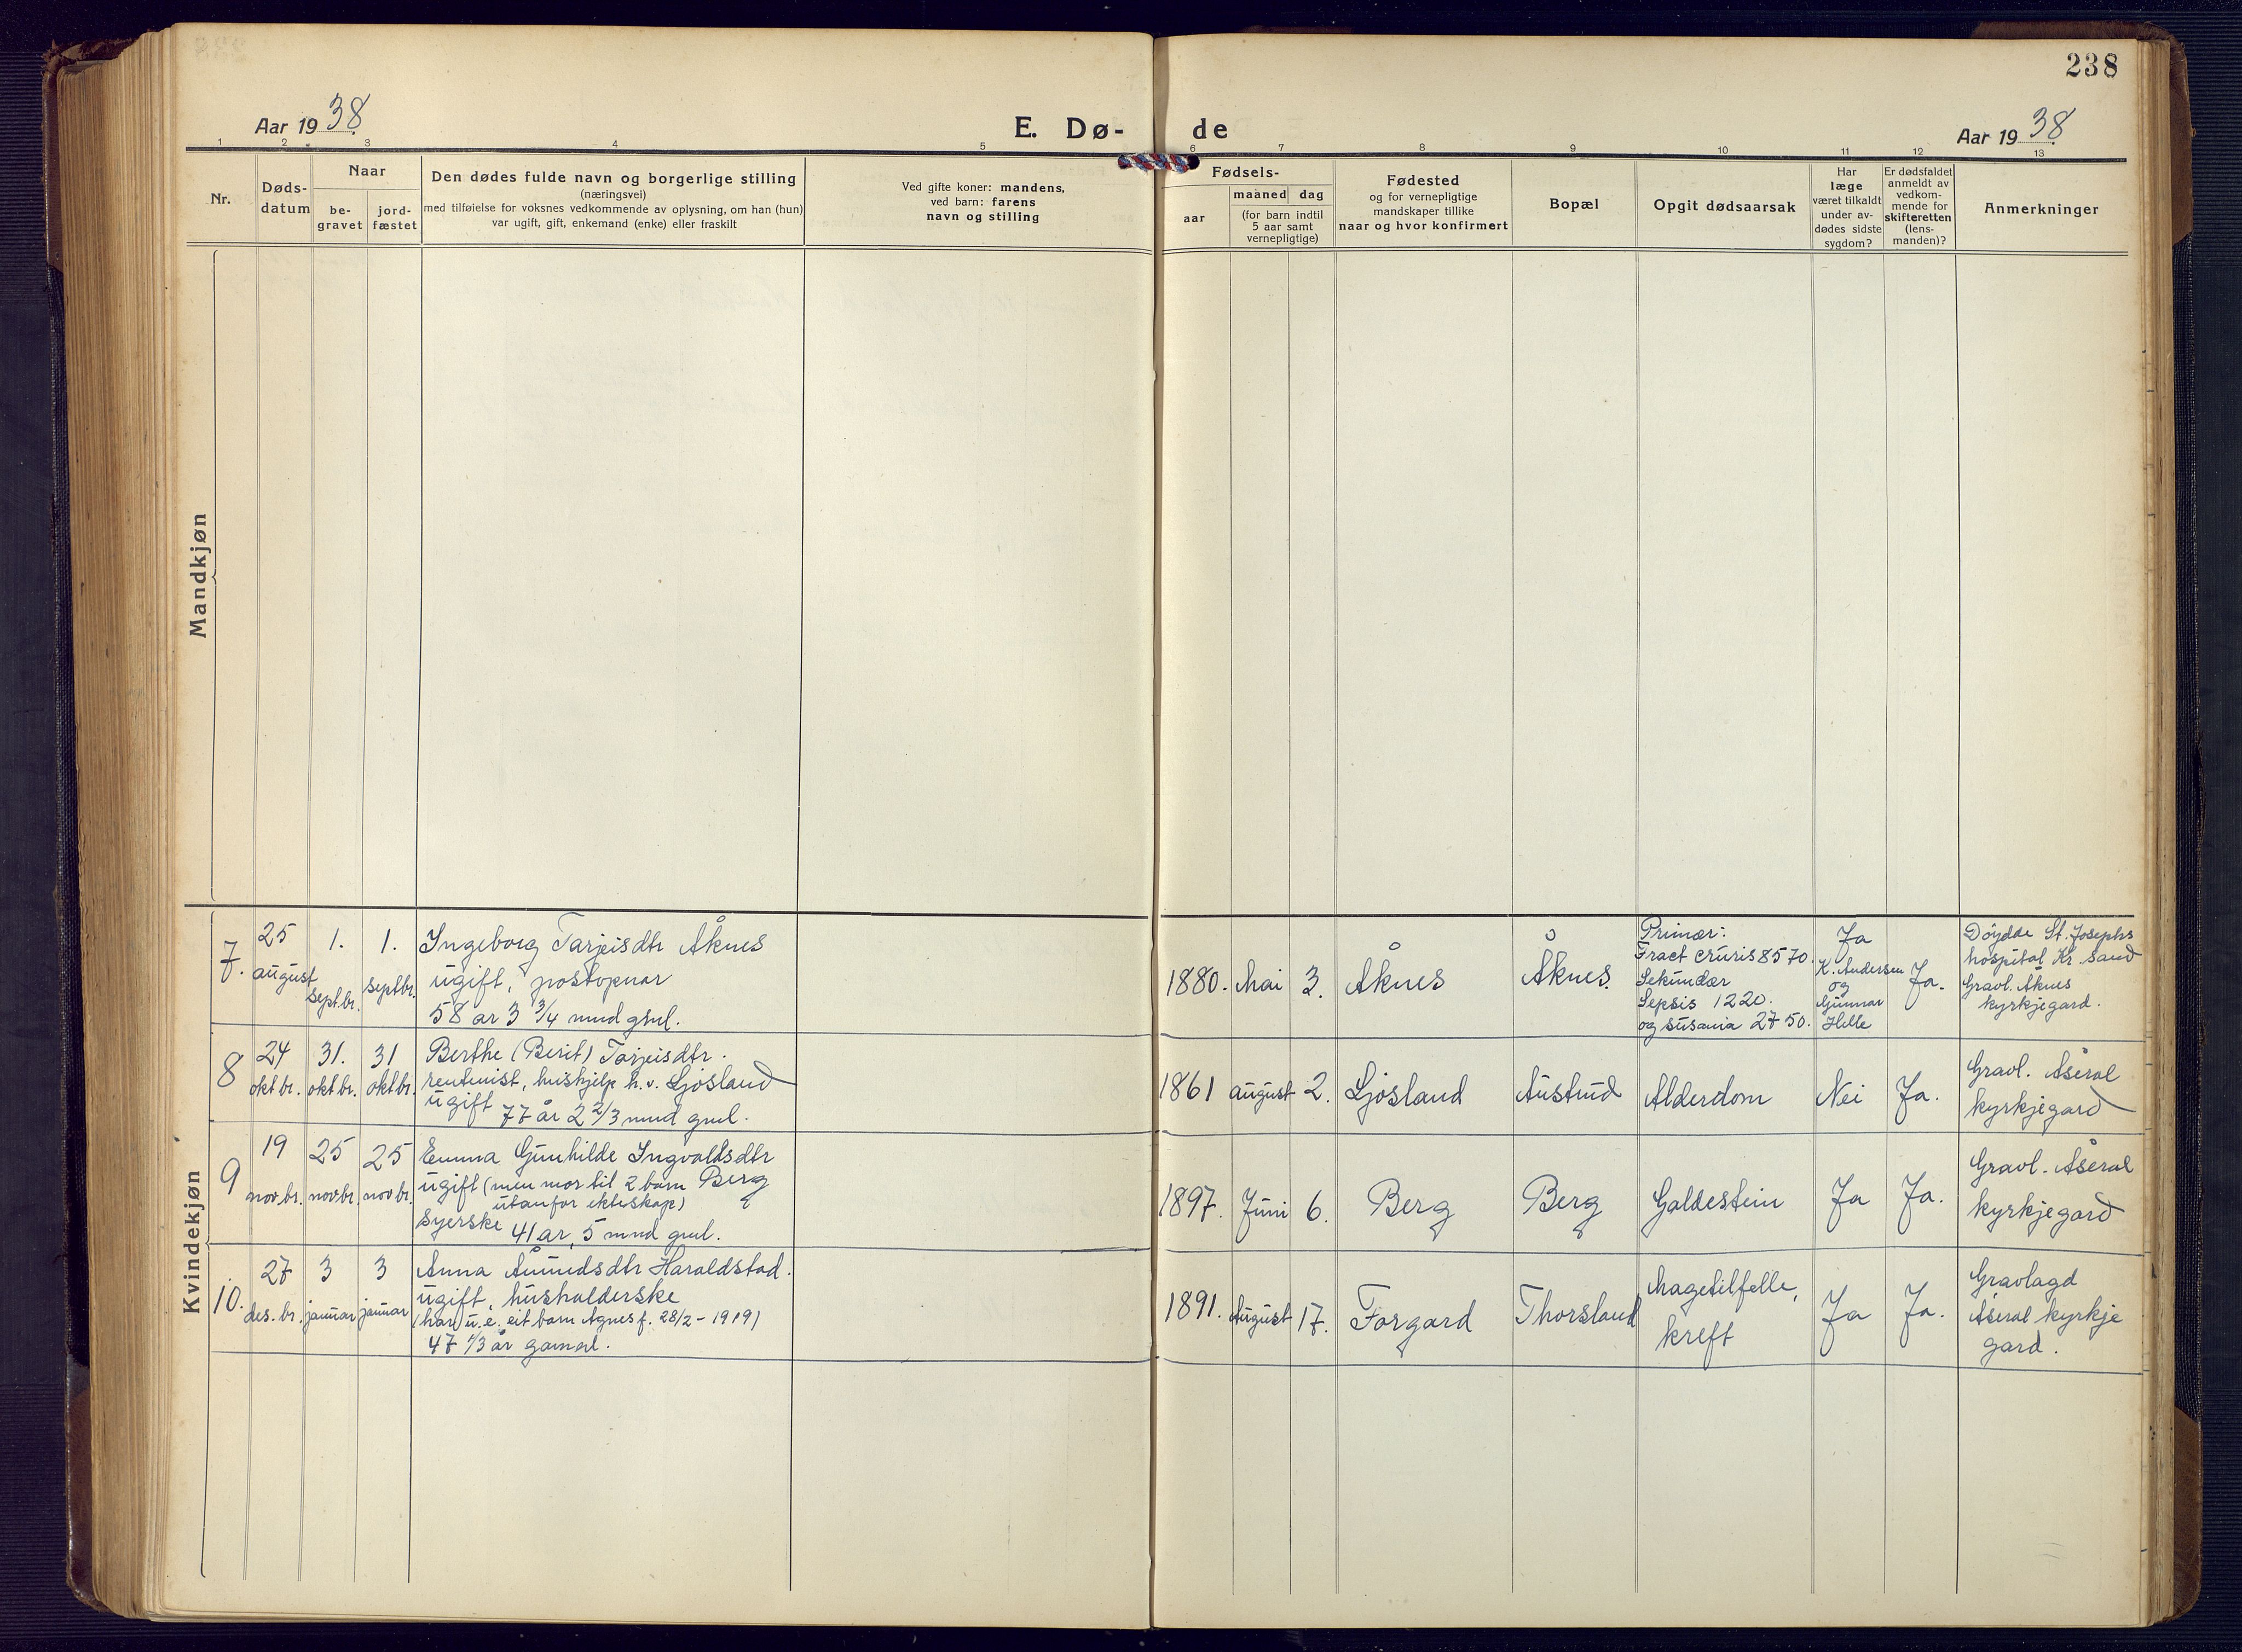 238
Aar 1938.
E. Dø-
de
Aar 1938.
1 2 3 4 5 6 7 8 9 10 11 12 13
Nr.
Døds-
datum
Naar
be-
gravet
jord-
fæstet
Den dødes fulde navn og borgerlige stilling
(næringsvei)
med tilføielse for voksnes vedkommende av oplysning, om han (hun)
var ugift, gift, enkemand (enke) eller fraskilt
Ved gifte koner: mandens,
ved barn: farens
navn og stilling
Fødsels-
aar
maaned dag
(for barn indtil
5 aar samt
vernepligtige)
Fødested
og for vernepligtige
mandskaper tillike
naar og hvor konfirmert
Bopæl
Opgit dødsaarsak
Har
læge
været tilkaldt
under av-
dødes sidste
sygdom?
Er dødsfaldet
anmeldt av
vedkom-
mende for
skifteretten
(lens-
manden)?
Anmerkninger
Mandkjøn
Kvindekjøn
7.
25
august
1.
sept.br.
1.
septbr.
Ingeborg Tarjeisdtr Åknes
ugift, postopnar
58 ar 3 3/4 mnd gml.
1880.
Mai
3.
Åknes
Åknes.
Primær:
Fract cruris 8570.
Sekundær
Sepsis 1220.
og 2750.
Ja
K. Andersen
og
Gunnar
Hille
Ja.
Døydde St. Josephs
hospital Kr. sand
Gravl. Åknes
kyrkjegard.
8
24
oktbr.
31.
oktbr.
31
oktbr.
Berthe (Berit) Tarjeisdtr.
rentenist, hushjelp h.v. Ljosland
ugift
77 år 2 2/3 mnd gml.
1861
august
2.
Ljosland
Austrud
Alderdom
Nei
Ja.
Gravl. Åseral
kyrkjegard
9
19
nov.br.
25
novbr.
25
novbr.
Emma Gunhilde Ingvaldsdtr
ugift (men mor til 2 barn Berg
utanfor ekteskap)
Syerske 41 ar, 5 mnd gml.
1897.
Juni
6.
Berg
Berg
Galdestein
Ja
Ja.
Gravl. Åseral
kyrkjegard
10.
27
des.br.
3
januar
3
januar
Anna Åmundsdtr Haraldstad.
ugift, husholderske
(har u.e. eit barn Agnes f. 28/2 - 1919)
47 1/3 år gamal.
1891.
August
17.
Forgard
Thorsland
Magetilfelle,
kreft
Ja
Ja.
Gravlagd
Åseral kyrkje
gard.